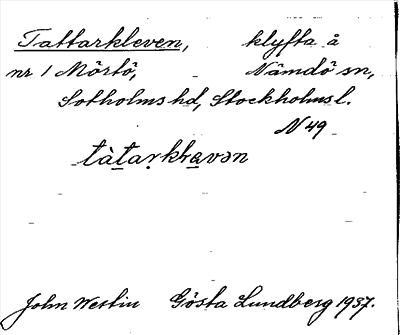 Tattarkleven, klyfta å
nr 1 Mörtö, Nämdö sn,
Sotholms hd, Stockholms l.
N 49
John Westin Gösta Lundberg 1937.